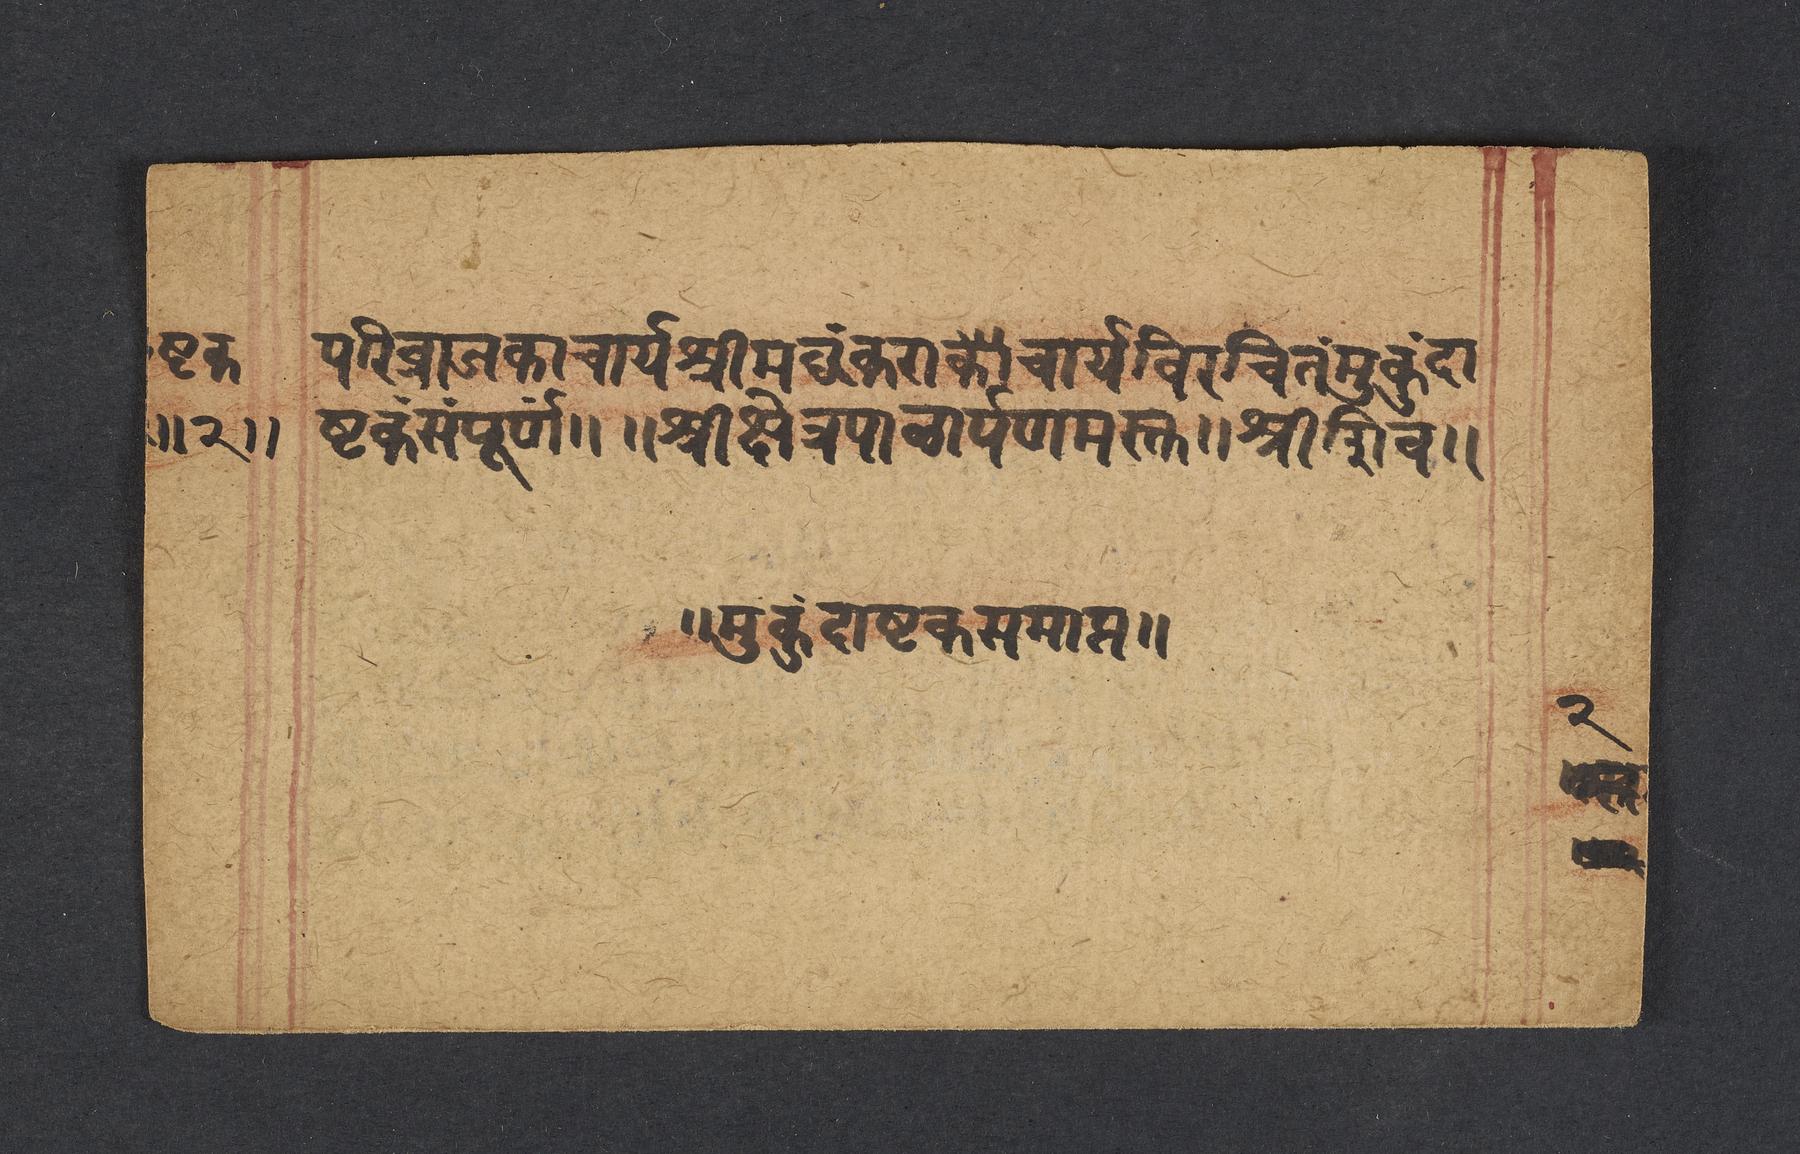 ष्टक
॥२॥
परिव्राजकाचार्यश्रीमछंकराचार्यविरचितंमुकुंदा
ष्टकंसंपूर्णं॥ ॥श्रीक्षेत्रपाळार्पणमस्तु॥श्रीशिव॥
॥मुकुंदाष्टकसमाप्त॥
२